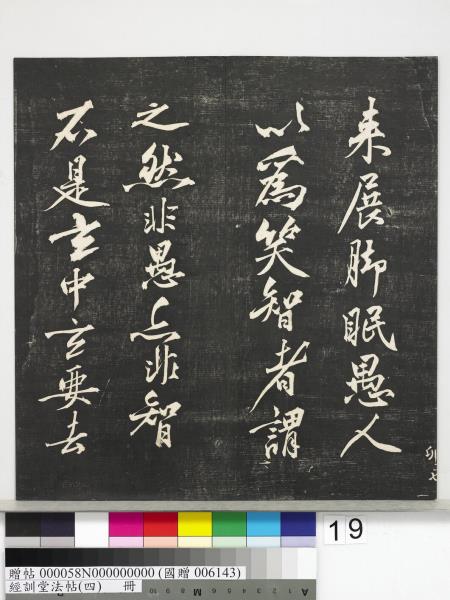 来展脚眠愚人
以為笑智者謂
之然非愚亦非智
不是玄中玄要去
19
贈帖 000058N000000000 (國贈 006143)
經訓堂法帖(四) 冊